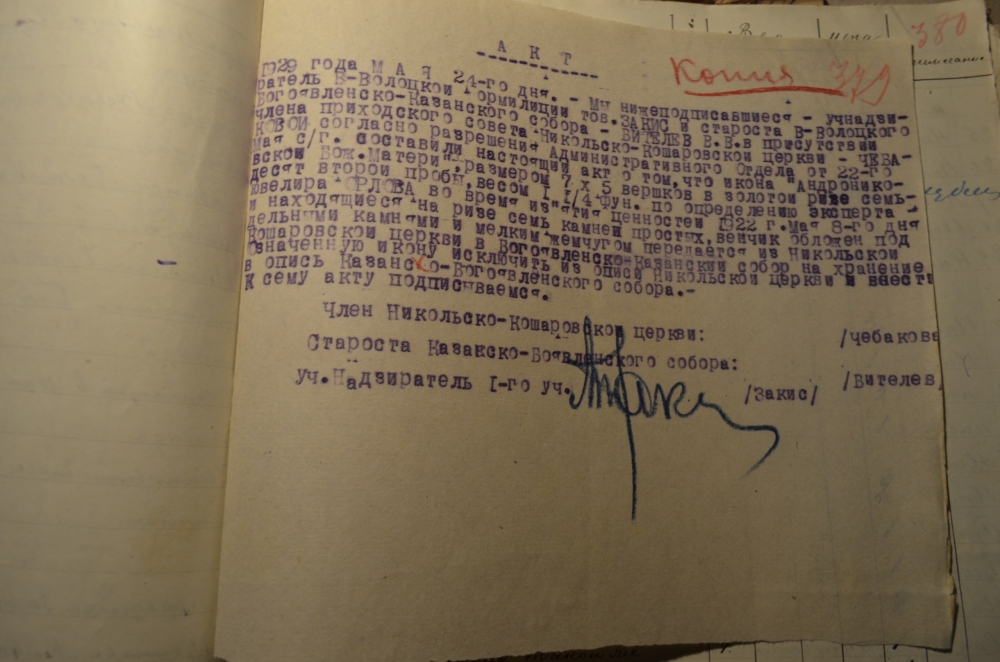 380
Копия 379
А К Т
1929 года М А Я 24-го дня. - Мы нижеподписавшиеся - учнадзи-
ратель В-Волоцкой Гормилиции тов.ЗАКИС и староста В-Волоцкого
Богоявленско-Казанского собора - ВИТЕЛЕВ В.В.в присутствии
члена приходского совета Никольско-Кошаровской церкви - ЧЕБА-
КОВОЙ согласно разрешения Административного Отдела от 22-го
Мая с/г. составили настоящий акт о том,что икона "Андронико-
вской Бож.Матери",размером 7 х 5 вершков в золотой ризе семь-
десят второй пробы,весом I I/4 фун. по определению эксперта
Ювелира ОРЛОВА во время из'ятия ценностей 1922 г.Мая 8-го дня
и находящиеся на ризе семь камней простых,венчик обложен под
дельными камнями и мелким жемчугом передается из Никольской
Кошаровской церкви в Богоявленско-Казанский собор на хранение
Означенную икону исключить из описи Никольской церкви и внести
в опись Казанско-Богоявленского собора.-
К сему акту подписываемся.
Член Никольско-Кошаровской церкви: /чебакова
Староста Казакско-Боявленского собора: /Вителев/
Уч.Надзиратель I-го уч. /Закис/